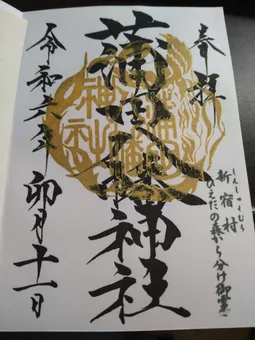 奉拝
しんしゅくむら
新宿村
ひえだの森から分け御霊
蒲田八幡神社
令和六年卯月十一日